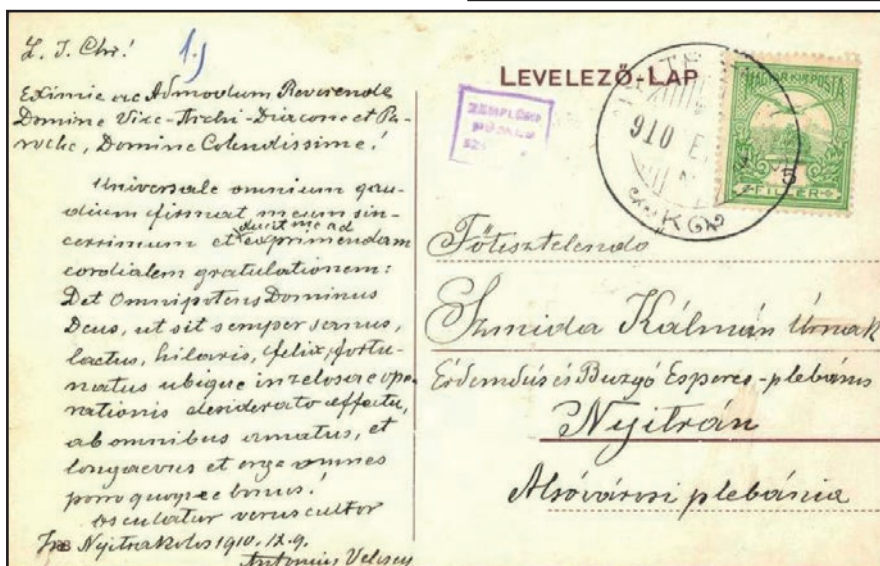 L. J. Chr! 1.)
Eximie ac Admodum Reverende
Domine Vice-Archi-Diacone et Pa-
roche, Domine Colendissime!
Universale omnium gau-
dium firmat meum sin-
cerrimum et duit me ad exprimendam
cordialem gratulationem:
Det Omnipotens Dominus
Deus, ut sit semper sanus,
laetus, hilaris, felix, fortu-
natus ubique in zelosae ope-
rationis desiderato effectu,
ab omnibus amatus, et
longaevus et erga omnes
porro quoque bonus!
Osculatur verus cultor
Nyitra 1910. 12. 9.
Antonius
LEVELEZŐ-LAP
MAGYAR KIR. POSTA
5
FILLÉR
910
Főtisztelendo
Szmida Kálmán Úrnak
Érdemdús és Buzgó Esperes-plebánus
Nyitrán
Alsóvárosi plebánia